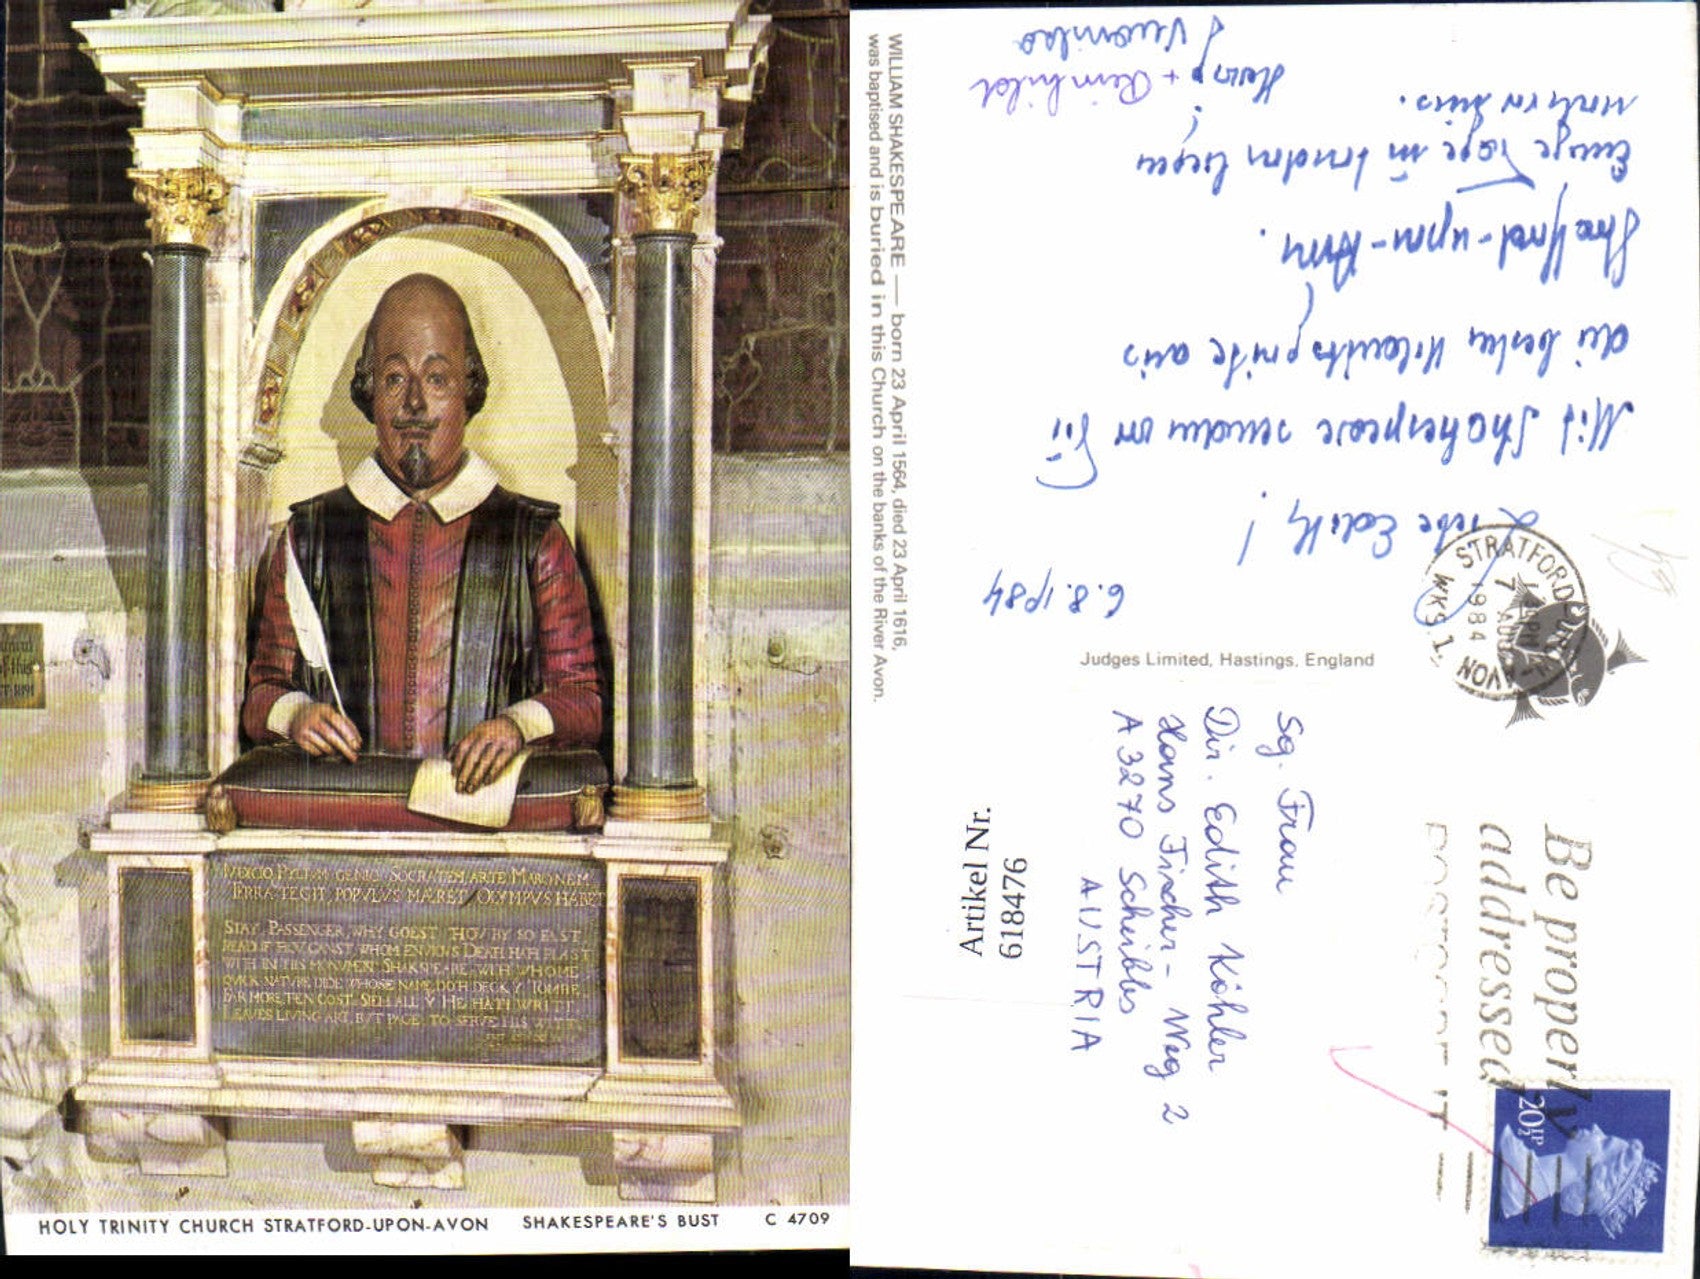 IVDICIO PYLIVM, GENIO SOCRATEM, ARTE MARONEM,
TERRA TEGIT, POPVLVS MÆRET, OLYMPVS HABET
STAY PASSENGER, WHY GOEST THOV BY SO FAST
READ IF THOV CANST, WHOM ENVIOVS DEATH HATH PLAST
WITH IN THIS MONVMENT SHAKSPEARE: WITH WHOME
QVICK NATVRE DIDE: WHOSE NAME DOTH DECK Y TOMBE,
FAR MORE, THEN COST: SIEH ALL, Y HE HATH WRITT,
LEAVES LIVING ART, BVT PAGE, TO SERVE HIS WITT.
of this
HOLY TRINITY CHURCH STRATFORD-UPON-AVON SHAKESPEARE'S BUST C 4709
WILLIAM SHAKESPEARE — born 23 April 1564, died 23 April 1616,
was baptised and is buried in this Church on the banks of the River Avon.
6.8.1984
Liebe Edith!
Mit Shakespeare senden wir Dir
die besten Urlaubsgrüße aus
Stratford-upon-Avon.
Einige Tage in London liegen
hinter uns.
+ Reinhild
Veronika
Judges Limited, Hastings, England
STRATFORD-UPON-AVON
7 AUG
1984
WKS. 1
Be properly
addressed
POSTCODE IT
20½P
Sg. Frau
Dir. Edith Köhler
Hans Fischer-Weg 2
A 3270 Scheibbs
AUSTRIA
Artikel Nr.
6184476